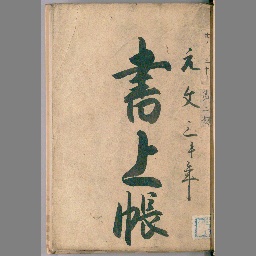 元文三年
書上帳